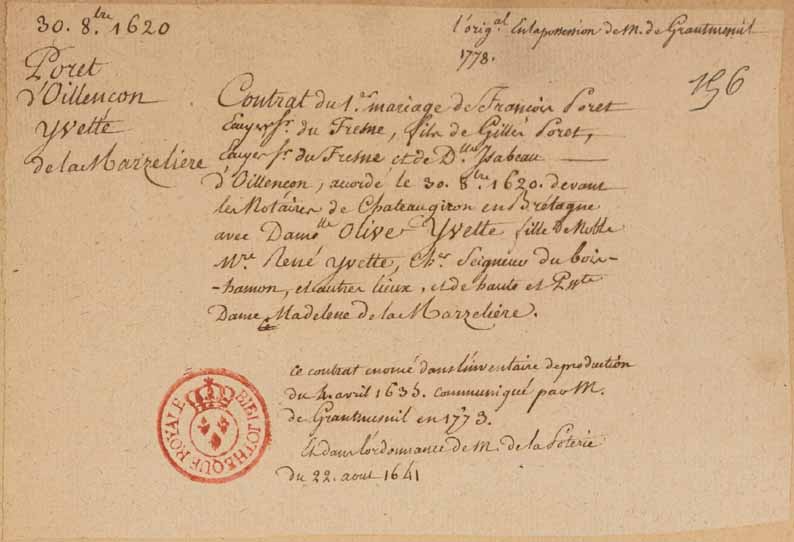 30. 8.bre 1620
l'orig.al En la possession de M. de Grantmesnil
1778.
156
Poret
d'Oillencon
Yvette
de la Marzeliere
Contrat du 1.er mariage de François Poret
Ecuyer S.r du Fresne, fils de Gilles Poret,
Ecuyer S.r du Fresne et de D.lle Isabeau
d'Oillencon, accordé le 30. 8.bre 1620. devant
les Notaires de Chateaugiron en Bretagne
avec Dam.lle Olive Yvette fille de Noble
M.re René Yvette, Ch.er Seigneur du bois-
-hamon, et autres lieux, et de haute et P.nte
Dame Madelene de la Marzelière.
Ce contrat enoncé dans l'inventaire de production
du 4. avril 1635. communiqué par M.
de Grantmesnil en 1773.
Et dans l'ordonnance de M. de la Poterie
du 22. aout 1641
BIBLIOTHEQUE ROYALE